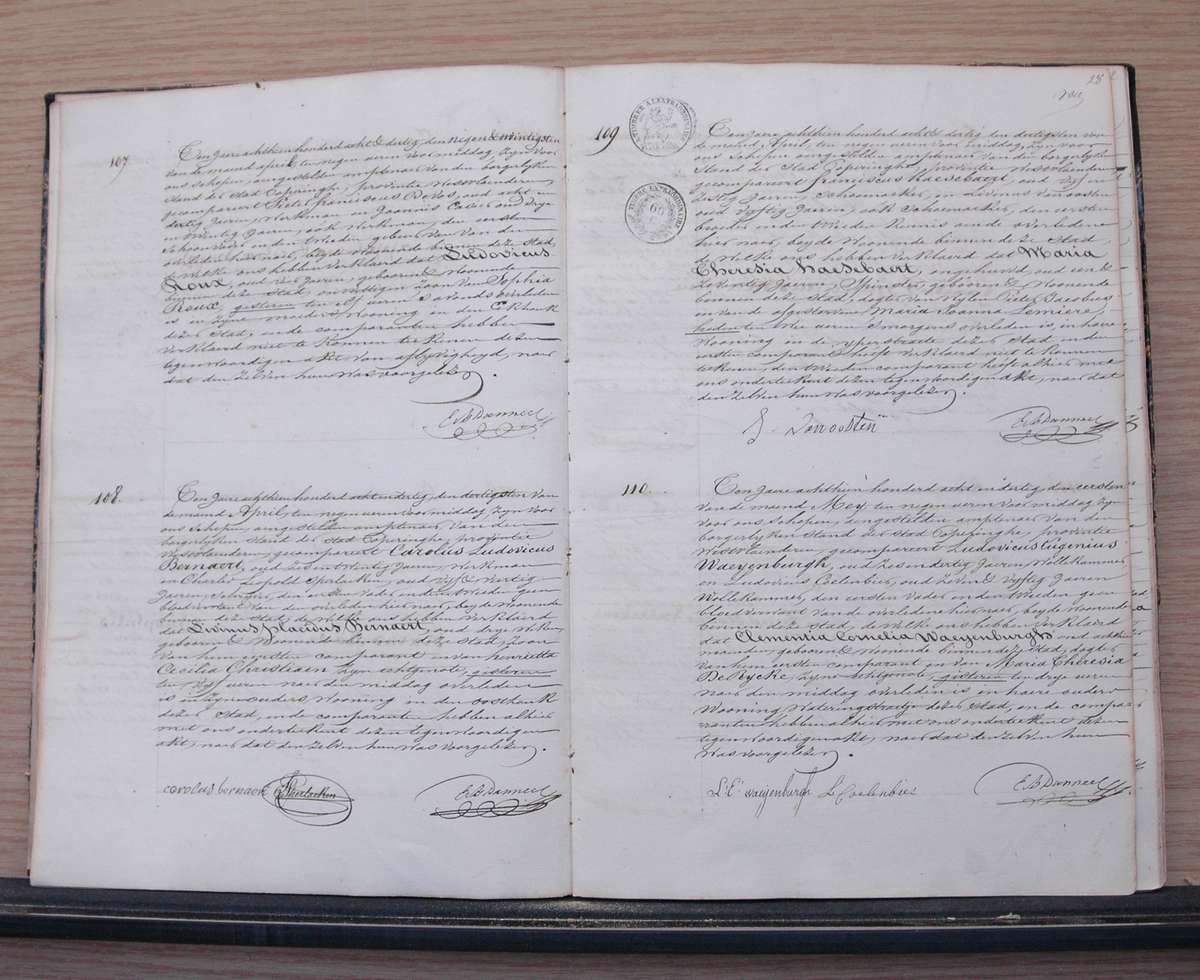 107
Ten Jaere achthien honderd acht & dertig, den negen & twintigsten
van de maend april, ten negen ueren voor middag, zyn voor
ons schepen, aengestelden amptenaer van den borgerlyken
stand der stad Poperinghe, provintie Westvlaenderen,
gecompareert Pieter Franciscus acht en
dertig Jaeren, Werkman en Joannis oud drye
en twintig Jaeren, ook Werkman, den eersten
van den
overleden hier naer, beyde Woonende binnen deze stad,
de welke ons hebben verklaerd dat Ludovicus
Roux, oud Jaeren, geboren & Woonende
binnen deze stad, zoon van Sophia
Roux, gisteren ten elf ueren 's avonds overleden
is in zyne moeders Wooning in den
dezer stad, en de comparanten hebben
verklaerd niet te konnen teekenen dezen
tegenwoordigen akt van aflyvigheyd, naer
dat den zelven hun was voorgelezen.
108.
Ten Jaere achthien honderd acht en dertig, den dertigsten van
de maend April, ten negen ueren voor middag, zyn voor
ons schepen, aengestelden amptenaer van den
borgerlyken stand der stad Poperinghe, provintie
Westvlaenderen, gecompareert Carolus Ludovicus
Bernaert, oud Jaeren, Werkman
en Charles Leopold oud vyf & veertig
Jaeren, den eersten vader en den tweeden geen
bloedverwant van den overleden hier naer, beyde Woonende
binnen deze stad, de welke ons hebben verklaerd
dat Livinus placidus Bernaert, oud drye
geboren & Woonende binnen deze stad, zoon
van hem eersten comparant en van henrietta
Cecilia Christiaen zyne echtgenote, gisteren
ten vyf ueren naer den middag overleden
is in zyne ouders Wooning in den oosthoek
dezer stad, en de comparanten hebben alhier
met ons onderteekent dezen tegenwoordigen
akt, naer dat den zelven hun was voorgelezen.
carolus bernaert
109
Ten Jaere achthien honderd acht & dertig, den dertigsten van
de maend April, ten negen ueren voor middag, zyn voor
ons schepen aengestelden amptenaer van den borgerlyken
stand der stad Poperinghe, provintie Westvlaenderen
gecompareert franciscus haesebaert, oud vyf &
Jaeren, Schoenmaeker, en Livinus Vanoosten
oud vyftig Jaeren, ook Schoenmaeker, den eersten
broeder en den tweeden kennis aen de overledene
hier naer, beyde Woonende binnen deze stad,
de welke ons hebben verklaerd dat Maria
Theresia haesebaert, ongehuwd, oud een &
Jaeren, Spinster, geboren & Woonende
binnen deze stad, dogter van Wylen Pieter Jacobus
en van de afgestorvene Maria Joanna Lemiere,
heden ten twee ueren s'morgens overleden is in haere
Wooning in de yperstraete dezer stad en den
eersten comparant heeft verklaerd niet te konnen
teekenen, den tweeden comparant heeft alhier met
ons onderteekent dezen tegenwoordigen akt, naer dat
den zelven hun was voorgelezen.
Vanoosten
110.
Ten Jaere achthien honderd acht en dertig, den eersten
van de maend Mey, ten negen ueren voor middag zyn
voor ons schepen, aengestelden amptenaer van den
borgerlyken stand der stad Poperinghe, provintie
Westvlaenderen, gecompareert Ludovicus Eugenius
Waeyenburgh, oud zes en dertig Jaeren, Wollekammer,
en Ludovicus Coelenbier, oud zeven & vyftig Jaeren
Wollekammer, den eersten vader en den tweeden geen
bloedverwant van de overledene hier naer, beyde Woonende
binnen deze stad, de welke ons hebben verklaerd
dat Clementia Cornelia Waeyenburgh oud achthien
maenden, geboren & Woonende binnen deze stad, dogter
van hem eersten comparant en van Maria Theresia
De Rycke, zyne echtgenote, gisteren ten drye ueren
naer den middag overleden is in haere ouders
Wooning dezer stad, en de compa-
ranten hebben alhier met ons onderteekent dezen
tegenwoordigen akt, naer dat den zelven hun
was voorgelezen.
L. E. waeyenburgh L Coelenbier